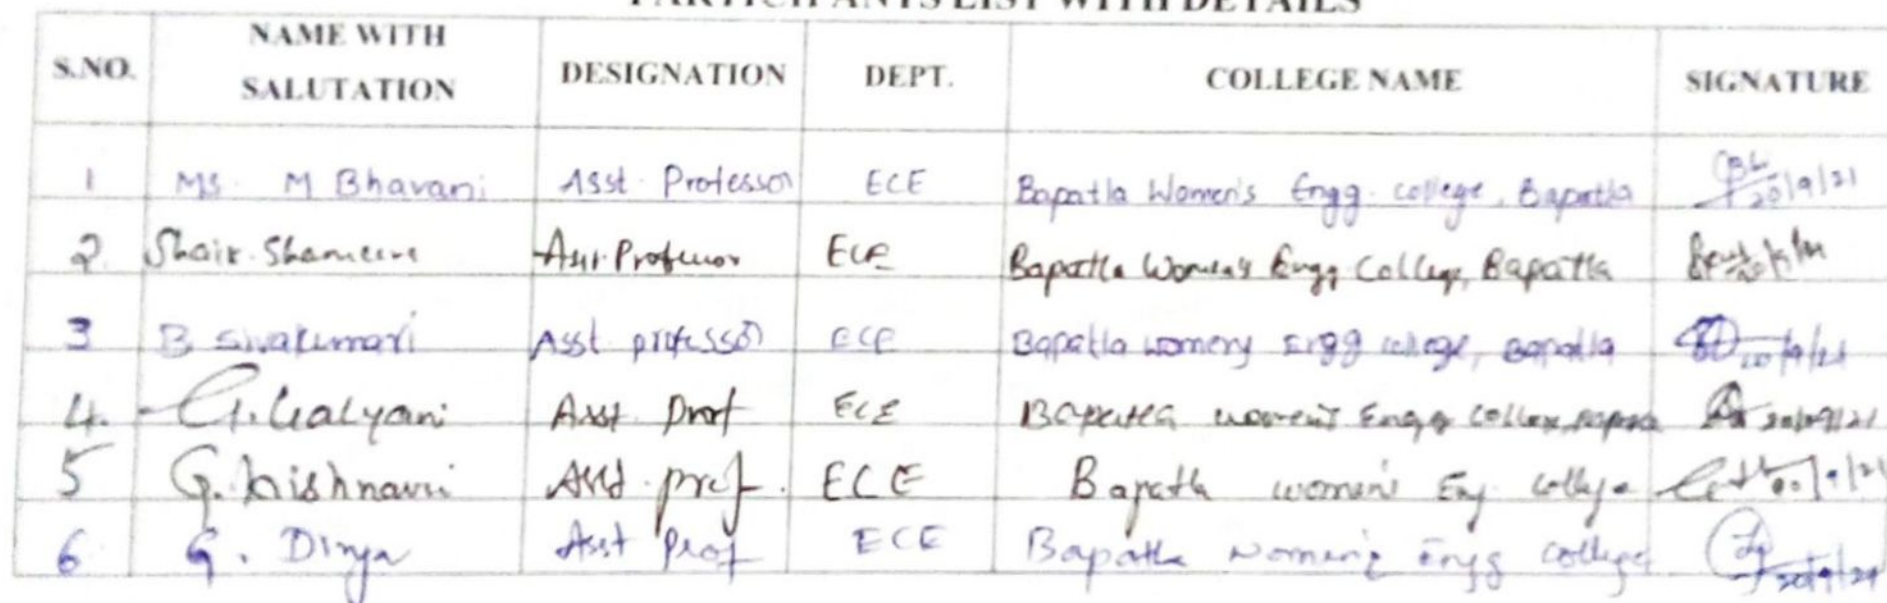 PARTICIPANTS LIST WITH DETAILS
S.NO. NAME WITH SALUTATION DESIGNATION DEPT. COLLEGE NAME SIGNATURE
1 Ms. M Bhavani Asst. Professor ECE Bapatla Women's Engg. college, Bapatla 20/9/21
2. Shaik. Shameem Asst. Professor ECE Bapatla Women's Engg College, Bapatla
3 B Sivakumari Asst professor ECE Bapatla womens Engg college, Bapatla 20/9/21
4. G. Kalyani Asst. Prof ECE Bapatla women's Engg College, 20/09/21
5 G. Asst. prof. ECE Bapatla women's Eng college 20/9/21
6 G. Divya Asst Prof ECE Bapatla women's Engg college 20/9/21